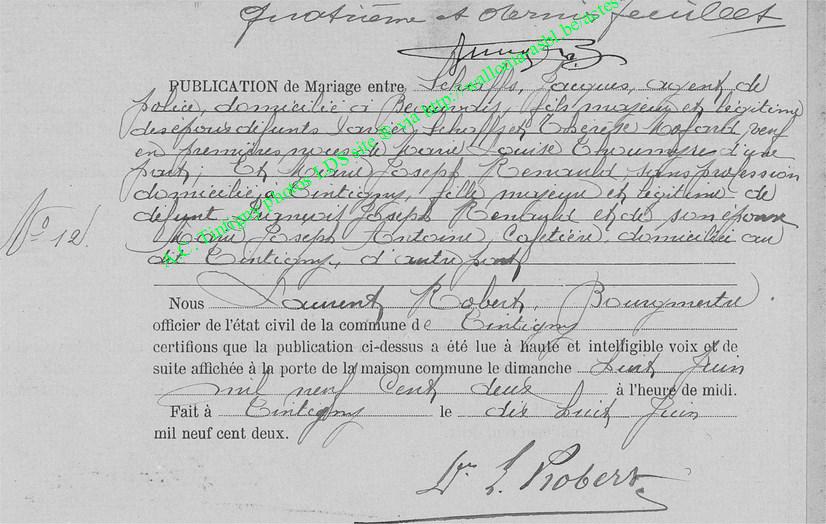 quatrième et dernier feuillet
PUBLICATION de Mariage entre Schoffs, Jacques, agent de
police, domicilié à fils majeur et légitime
des époux défunts Schoffs et Thérèse veuf
en premières noces de Marie Louise d'une
part; Et Marie Joseph Renauld, sans profession
domiciliée à Tintigny, fille majeure et légitime de
défunt Joseph Renauld et de son épouse
Marie Joseph Antoine, Cafetière domiciliée au
dit Tintigny, d'autre part
N° 12.
Nous Laurent Robert, Bourgmestre
officier de l'état civil de la commune de Tintigny
certifions que la publication ci-dessus a été lue à haute et intelligible voix et de
suite affichée à la porte de la maison commune le dimanche huit Juin
mil neuf Cent deux à l'heure de midi.
Fait à Tintigny le dix huit Juin
mil neuf cent deux.
Dr L. Robert
A.C. Tintigny photos LDS site @via http://walloniarasbl.be/astes